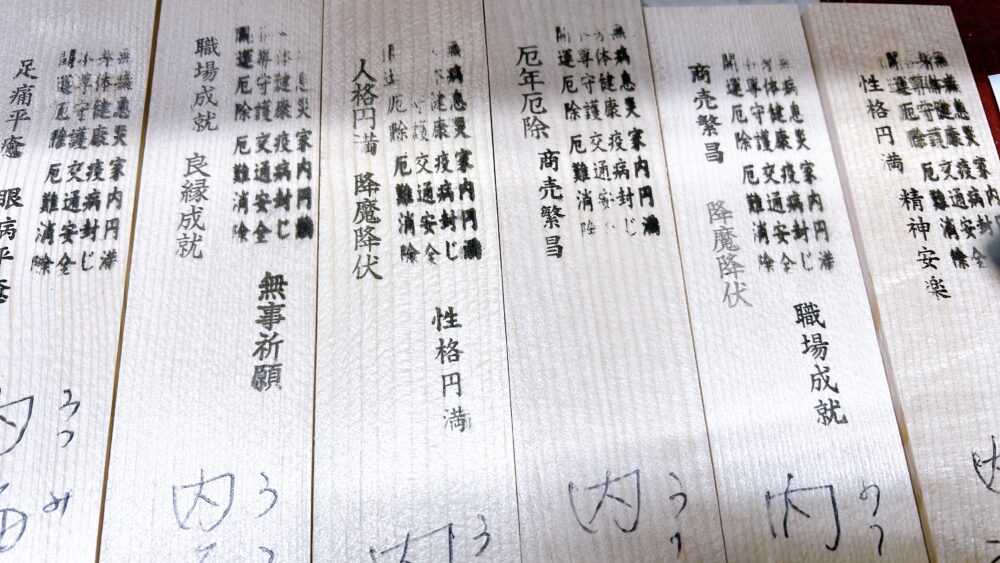 無病息災 家内円満
身体健康 疫病封じ
尊守護 交通安全
開運厄除 厄難消除
性格円満 精神安楽
無病息災 家内円満
身体健康 疫病封じ
尊守護 交通安全
開運厄除 厄難消除
商売繁昌 降魔降伏
職場成就
内
無病息災 家内円満
体健康 疫病封じ
尊守護 交通安
開運厄除 厄難消除
厄年厄除 商売繁昌
内
う
無病息災 家内円満
健康 疫病封じ
守護 交通安全
厄除 厄難消除
人格円満 降魔降伏
性格円満
内
う
無病息災 家内円満
体健康 疫病封じ
尊守護 交通安全
開運厄除 厄難消除
職場成就 良縁成就
無事祈願
内
う
無病息災 家内円満
身体健康 疫病封じ
尊守護 交通安全
開運厄除 厄難消除
足痛平癒 眼病平癒
内
うつ
み